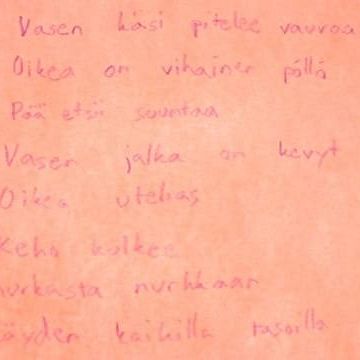 Vasen käsi pitelee vauvaa
Oikea on vihainen pöllö
Pää etsii suuntaa
Vasen jalka on kevyt
Oikea utelias
Keho kulkee
nurkasta nurkkaan
käyden kaikilla tasoilla